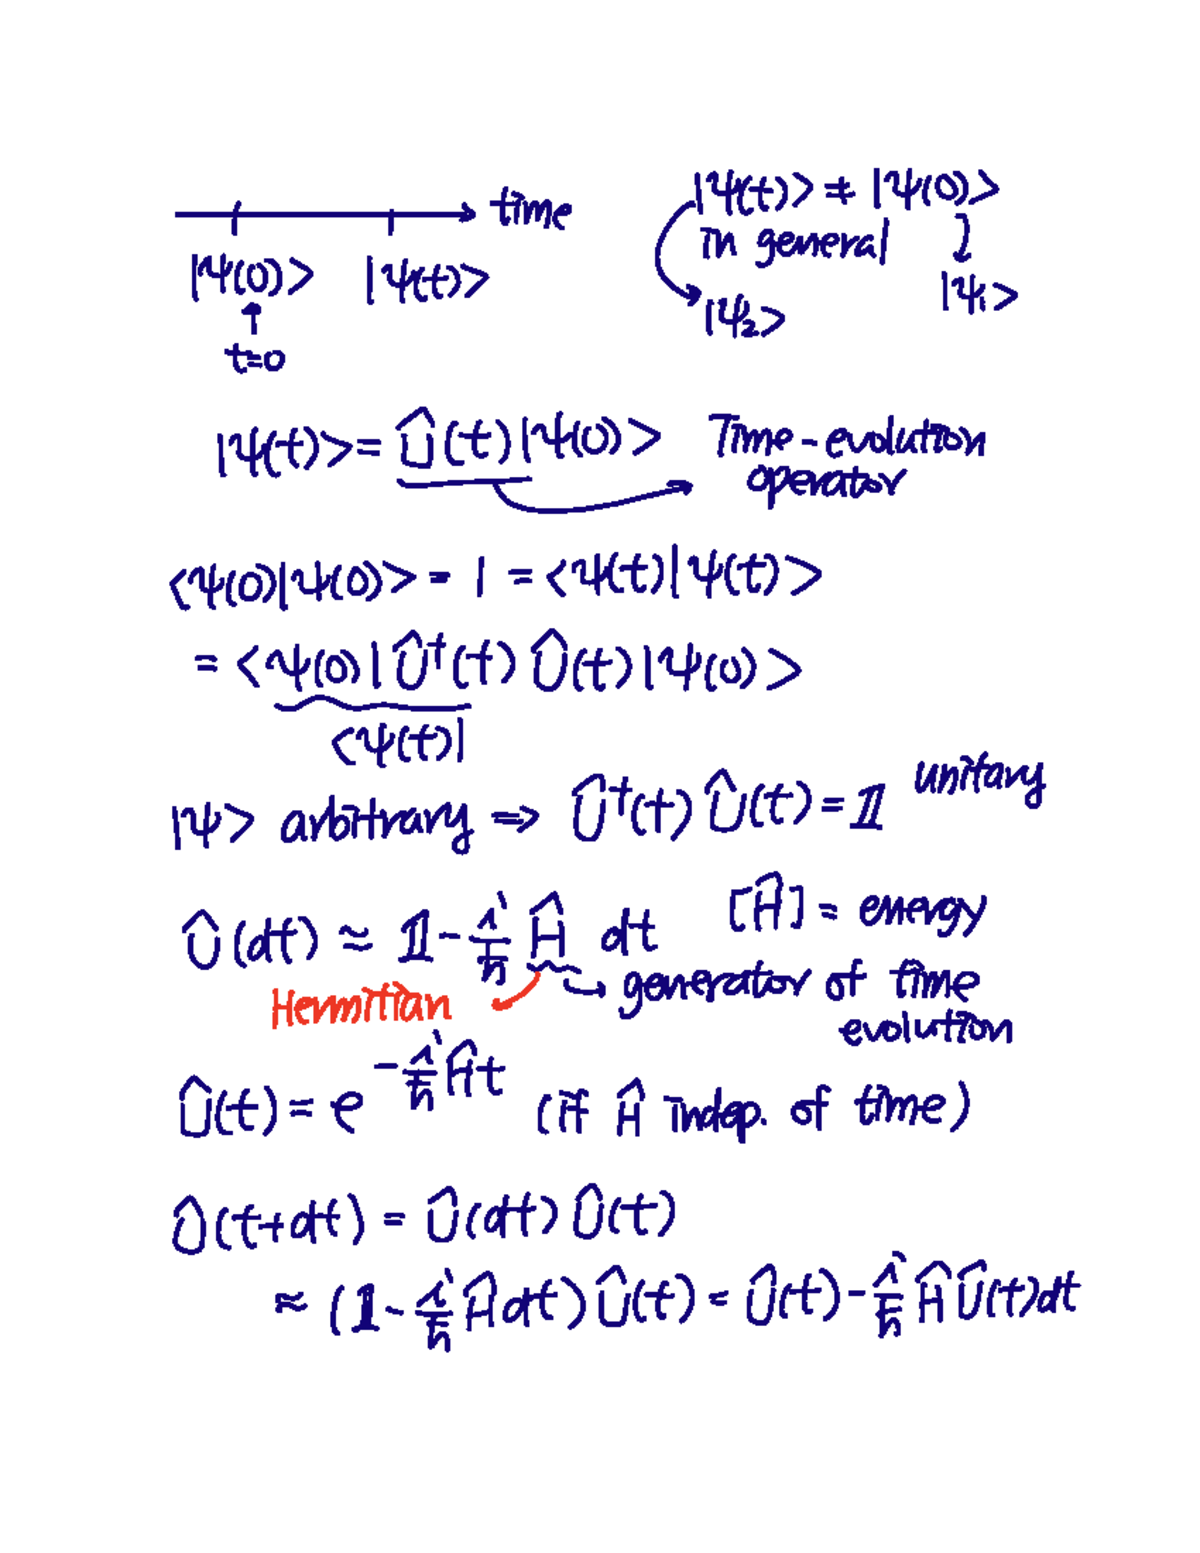 time
|ψ(0)> |ψ(t)>
t=0
|ψ(t)> ≠ |ψ(0)>
in general
|ψ₂> |ψ₁>
|ψ(t)> = Û(t)|ψ(0)> Time-evolution
operator
<ψ(0)|ψ(0)> = 1 = <ψ(t)|ψ(t)>
= <ψ(0)|Û†(t) Û(t)|ψ(0)>
<ψ(t)|
|ψ> arbitrary ⇒ Û†(t) Û(t) = 𝟙 unitary
Û(dt) ≈ 𝟙 - i/ħ Ĥ dt [Ĥ] = energy
Hermitian → generator of time
evolution
Û(t) = e^(-i/ħ Ĥt) (if Ĥ indep. of time)
Û(t+dt) = Û(dt) Û(t)
≈ (𝟙 - i/ħ Ĥdt) Û(t) = Û(t) - i/ħ ĤÛ(t)dt